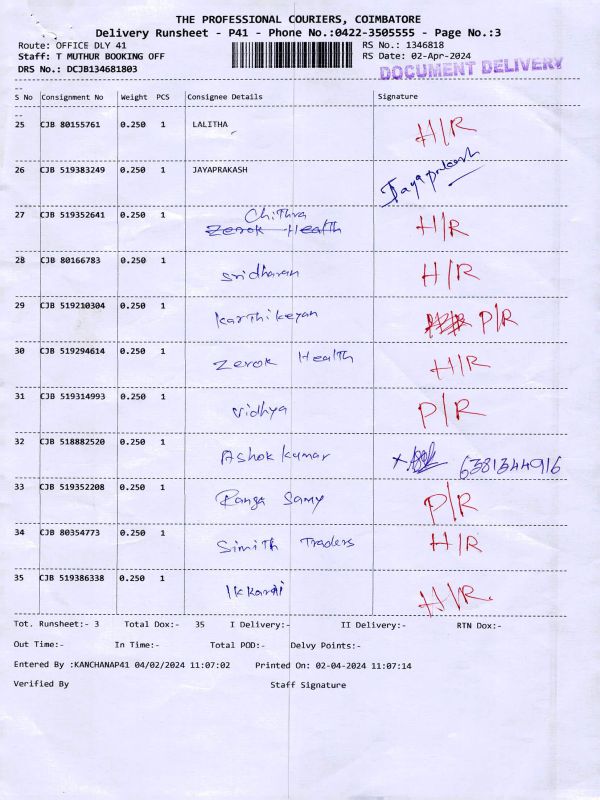 THE PROFESSIONAL COURIERS, COIMBATORE
Delivery Runsheet - P41 - Phone No.:0422-3505555 - Page No.:3
Route: OFFICE DLY 41 RS No.: 1346818
Staff: T MUTHUR BOOKING OFF RS Date: 02-Apr-2024
DRS No.: DCJB134681803 DOCUMENT DELIVERY
--
S No Consignment No Weight PCS Consignee Details Signature
--
25 CJB 80155761 0.250 1 LALITHA H/R
26 CJB 519383249 0.250 1 JAYAPRAKASH Jayaprakash
27 CJB 519352641 0.250 1 Chithra H/R
Zerok Health
28 CJB 80166783 0.250 1 Sridharan H/R
29 CJB 519210304 0.250 1 Karthikeyan P/R
30 CJB 519294614 0.250 1 Zerok Health H/R
31 CJB 519314993 0.250 1 Vidhya P/R
32 CJB 518882520 0.250 1 Ashok kumar 6381344916
33 CJB 519352208 0.250 1 Ranga Samy P/R
34 CJB 80354773 0.250 1 Simith Traders H/R
35 CJB 519386338 0.250 1 H/R
Tot. Runsheet:- 3 Total Dox:- 35 I Delivery:- II Delivery:- RTN Dox:-
Out Time:- In Time:- Total POD:- Delvy Points:-
Entered By :KANCHANAP41 04/02/2024 11:07:02 Printed On: 02-04-2024 11:07:14
Verified By Staff Signature